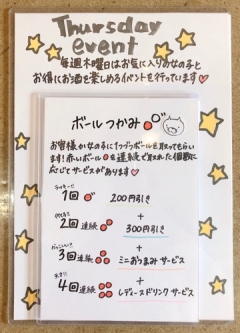 Thursday
event
毎週木曜日はお気に入りの女の子と
お得にお酒を楽しめるイベントを行っています
ボールつかみ
お客様か女の子に1つづつボールを取ってもらい
ます!赤いボールを連続で取れた個数に
応じてサービスがあります
1回 200円引き
+
2回連続 300円引き
+
3回連続 ミニおつまみサービス
+
4回連続 レディースドリンクサービス